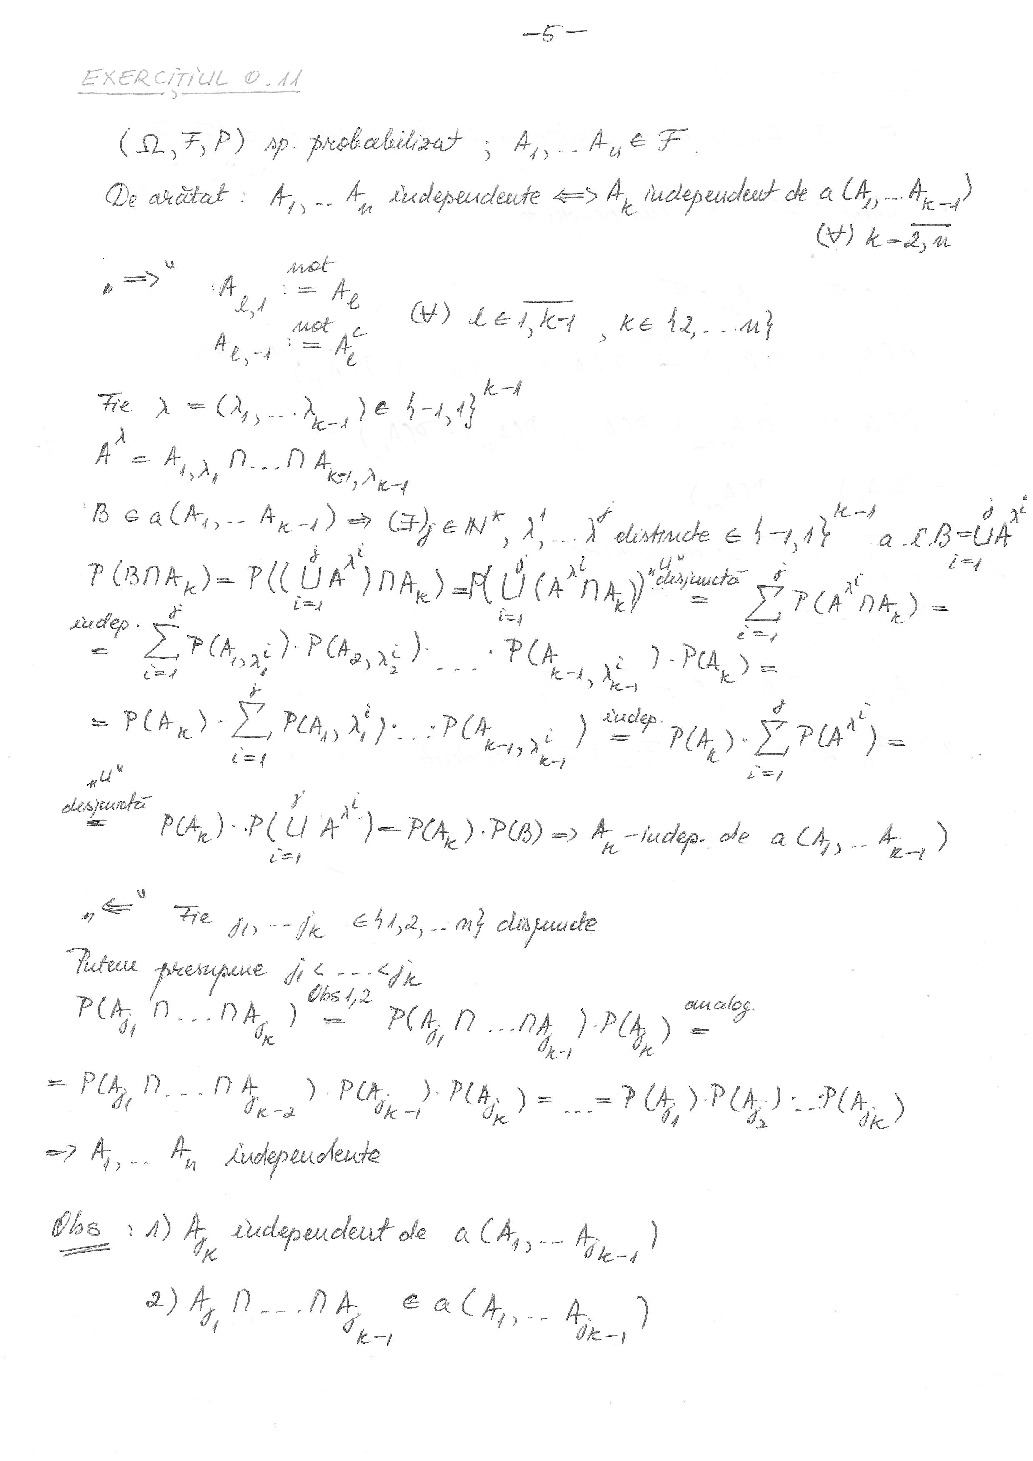 -5-
EXERCIȚIUL 0.11
(Ω, F, P) sp. probabilizat ; A₁, ... Aₙ ∈ F.
De arătat : A₁, .. Aₙ independente ⟺ A_k independent de a(A₁, ... A_{k-1})
(∀) k = \overline{2,n}
„⟹" A_{l,1} :=^{not} A_l
A_{l,-1} :=^{not} A_l^c (∀) l ∈ \overline{1,k-1} , k ∈ {2, ... n}
Fie λ = (λ₁, ... λ_{k-1}) ∈ {-1,1}^{k-1}
A^λ = A_{1,λ₁} ∩ ... ∩ A_{k-1,λ_{k-1}}
B ∈ a(A₁, .. A_{k-1}) ⇒ (∃) j ∈ ℕ*, λ¹, ... λ^j distincte ∈ {-1,1}^{k-1} a.î. B = ⋃_{i=1}^{j} A^{λ^i}
P(B∩A_k) = P((⋃_{i=1}^{j} A^{λ^i}) ∩ A_k) = P(⋃_{i=1}^{j} (A^{λ^i} ∩ A_k)) =^{„∪" disjunctă} ∑_{i=1}^{j} P(A^{λ^i} ∩ A_k) =
=^{indep.} ∑_{i=1}^{j} P(A_{1,λ₁^i}) · P(A_{2,λ₂^i}) · ... · P(A_{k-1,λ_{k-1}^i}) · P(A_k) =
= P(A_k) · ∑_{i=1}^{j} P(A_{1,λ₁^i}) · ... · P(A_{k-1,λ_{k-1}^i}) =^{indep.} P(A_k) · ∑_{i=1}^{j} P(A^{λ^i}) =
=^{„∪" disjunctă} P(A_k) · P(⋃_{i=1}^{j} A^{λ^i}) = P(A_k) · P(B) ⇒ A_k - indep. de a(A₁, .. A_{k-1})
„⟸" Fie j₁, ... j_k ∈ {1,2, .. n} disjuncte
Putem presupune j₁ < ... < j_k
P(A_{j₁} ∩ ... ∩ A_{j_k}) =^{Obs 1,2} P(A_{j₁} ∩ ... ∩ A_{j_{k-1}}) · P(A_{j_k}) =^{analog.}
= P(A_{j₁} ∩ ... ∩ A_{j_{k-2}}) · P(A_{j_{k-1}}) · P(A_{j_k}) = ... = P(A_{j₁}) · P(A_{j₂}) · ... · P(A_{j_k})
⇒ A₁, ... Aₙ independente
Obs : 1) A_{j_k} independent de a(A₁, ... A_{j_{k-1}})
2) A_{j₁} ∩ ... ∩ A_{j_{k-1}} ∈ a(A₁, ... A_{j_{k-1}})